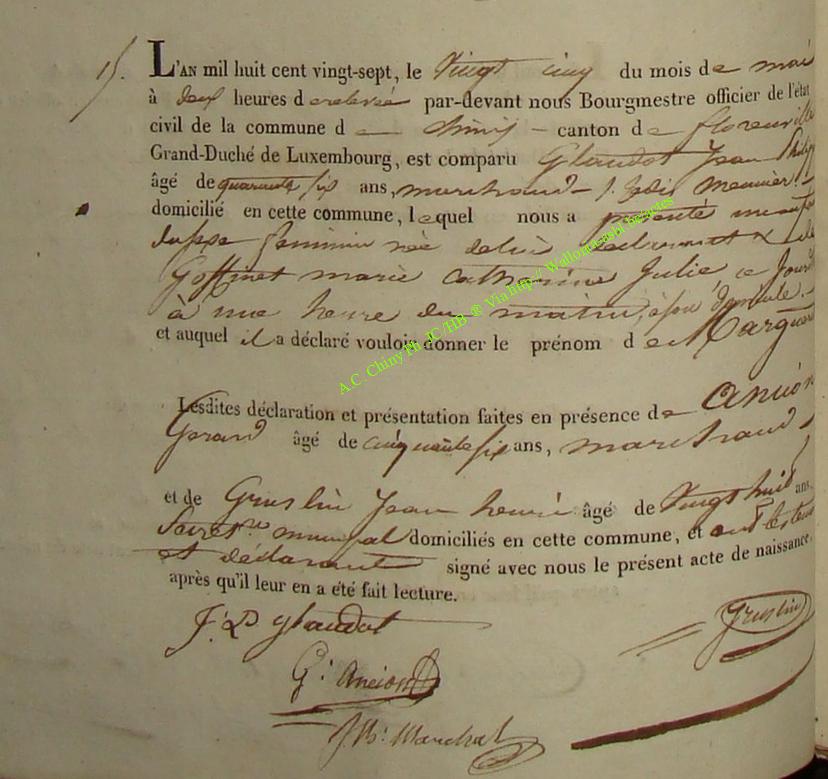 15. L'AN mil huit cent vingt-sept, le Vingt cinq du mois de mai
à deux heures de relevée par-devant nous Bourgmestre officier de l'état
civil de la commune de Chiny canton de florenville
Grand-Duché de Luxembourg, est comparu Glaudot Jean Philip
âgé de quarante six ans, marchand jadis Meunier
domicilié en cette commune, lequel nous a présenté un enfant
du sexe feminin née de lui declarant & de
Goffinet marie Catherine Julie, ce jourd
à une heure du matin, à son domicile.
et auquel il a déclaré vouloir donner le prénom de Marguer
Lesdites déclaration et présentation faites en présence de Ancion
Gerard âgé de cinquante six ans, marchand
et de Gruslin Jean henri âgé de Vingt huit ans,
Secret.re municipal domiciliés en cette commune, et ont les temo
et déclarant signé avec nous le présent acte de naissance,
après qu'il leur en a été fait lecture.
J. P. glaudot
Gruslin
G. Ancion
J. Marchal
A.C. Chiny Ph JC/HB ® Via http:// Wallonica